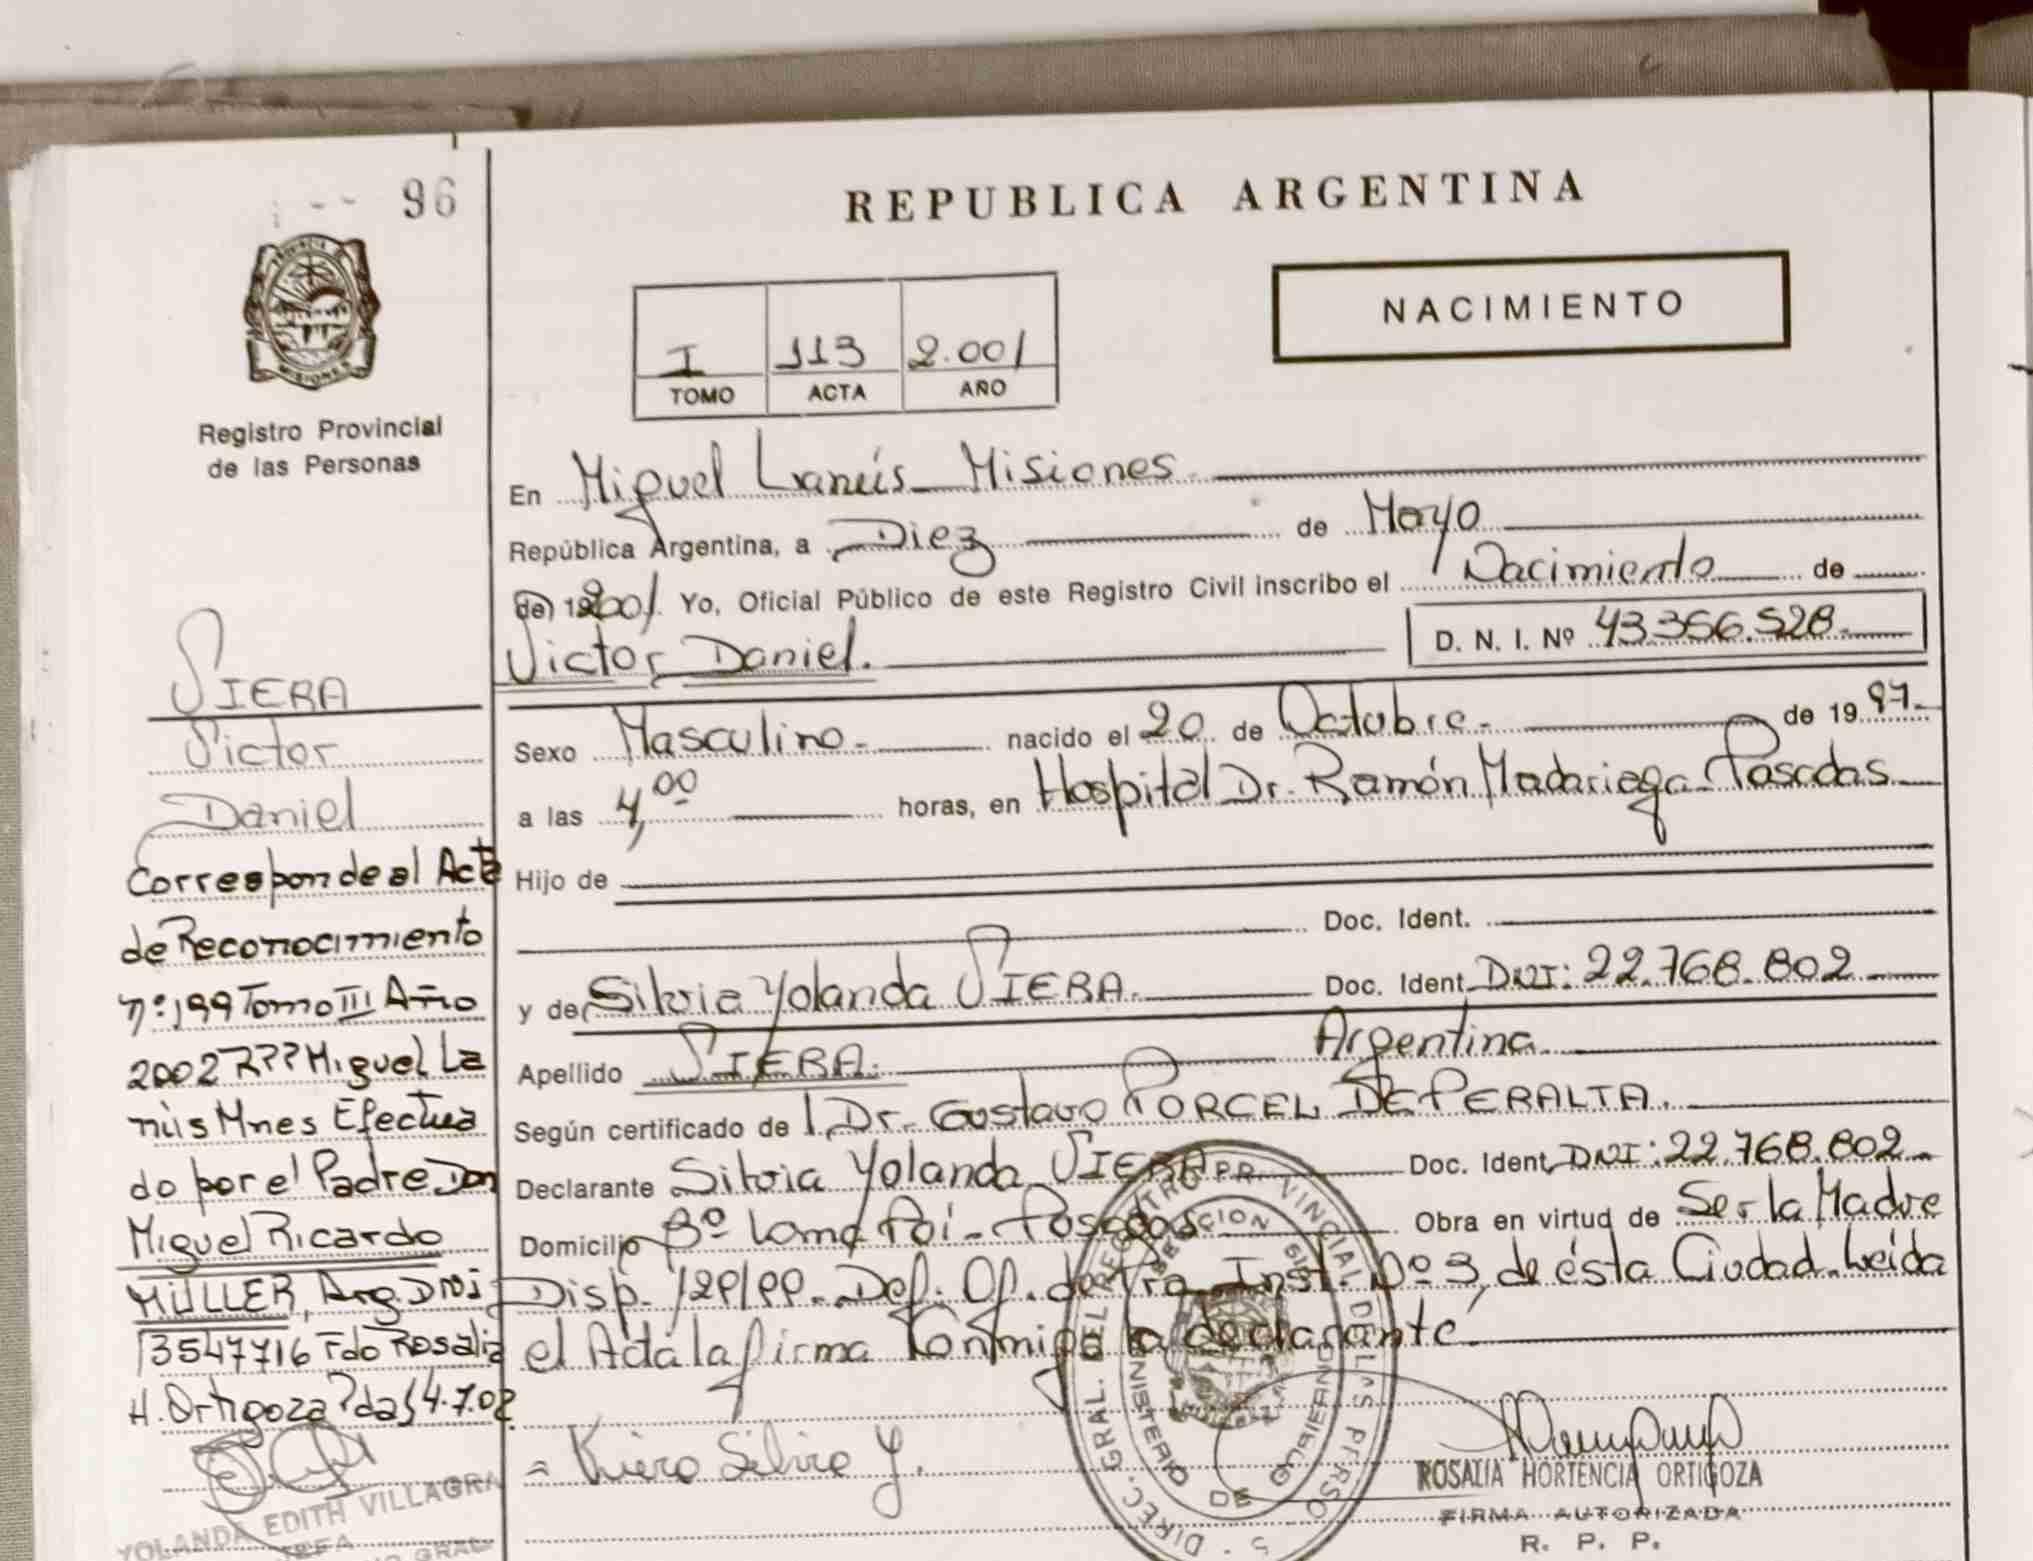 96
REPUBLICA ARGENTINA
NACIMIENTO
I 113 2.001
TOMO ACTA AÑO
Registro Provincial
de las Personas
SIERA
Victor
Daniel
Corresponde al Acta
de Reconocimiento
nº: 199 Tomo III Año
2002 R?? Miguel La
nús Mnes Efectua
do por el Padre Don
Miguel Ricardo
MÜLLER, Arg. DNI
13547716 Fdo Rosalia
H. Ortigoza Pdas 4.7.02
YOLANDA EDITH VILLAGRA
JEFA
En Miguel Lanús Misiones
República Argentina, a Diez de Mayo
de 2001 Yo, Oficial Público de este Registro Civil inscribo el Nacimiento de
Victor Daniel. D. N. I. Nº 43.356.528.
Sexo Masculino. nacido el 20 de Octubre. de 1997.
a las 4,00 horas, en Hospital Dr. Ramón Madariaga Posadas
Hijo de
Doc. Ident.
y de Silvia Yolanda SIERA. Doc. Ident. DNI: 22.768.802
Apellido SIERA. Argentina
Según certificado de Dr. Gustavo PORCEL DE PERALTA.
Declarante Silvia Yolanda SIERA Doc. Ident. DNI: 22.768.802
Domicilio Bº Loma Poí - Posadas Obra en virtud de Ser la Madre
Disp. 129/99. Def. Of. de 1ra Inst. Nº 3, de ésta Ciudad. Leída
el Acta la firma Conmigo la declarante
Silvia Y.
DIREC. GRAL. DEL REGISTRO PROVINCIAL DE LAS PERSONAS
MINISTERIO DE GOBIERNO
ROSALIA HORTENCIA ORTIGOZA
FIRMA AUTORIZADA
R. P. P.